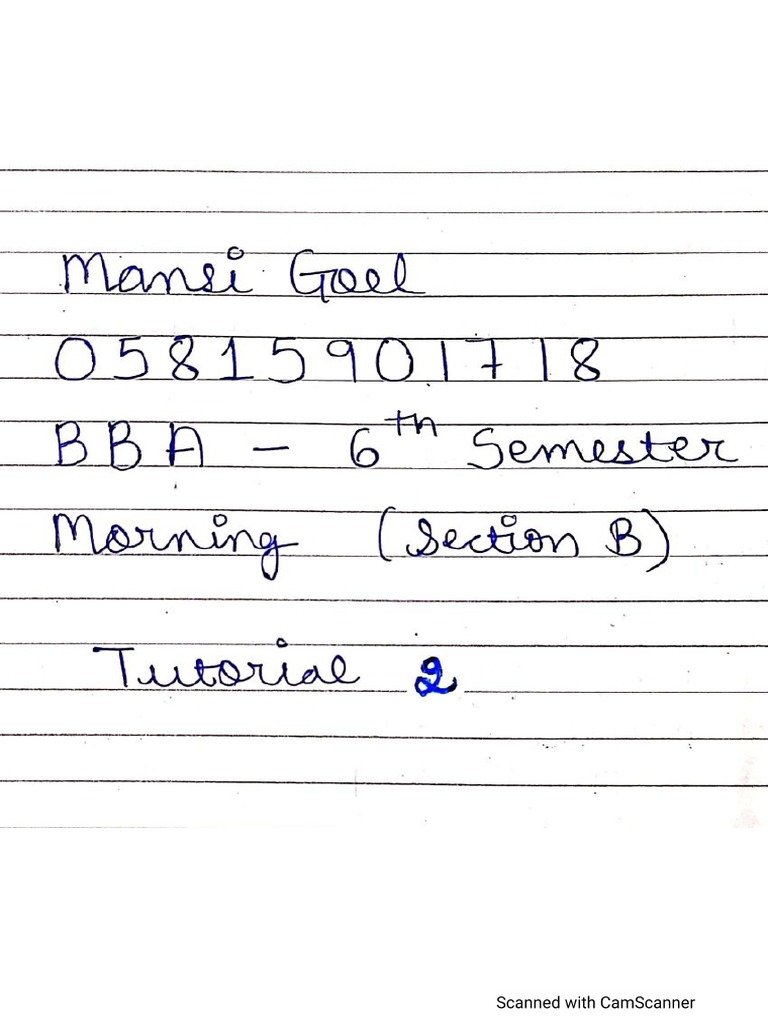 Mansi Goel
05815901718
BBA - 6th Semester
Morning (Section B)
Tutorial 2
Scanned with CamScanner